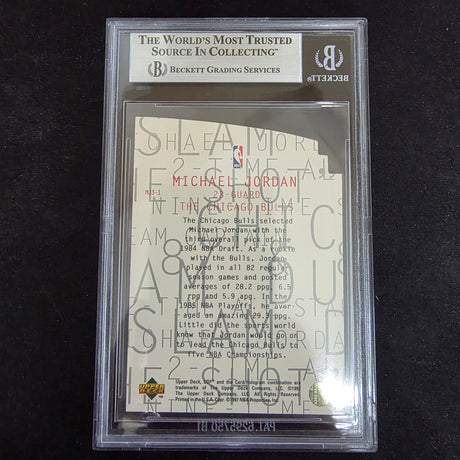 THE WORLD'S MOST TRUSTED
SOURCE IN COLLECTING™
BECKETT GRADING SERVICES
BECKETT
MJ3-1
MICHAEL JORDAN
23-GUARD
THE CHICAGO BULLS
The Chicago Bulls selected
Michael Jordan with the
third overall pick of the
1984 NBA Draft. As a rookie
with the Bulls, Jordan
played in all 82 regular
season games and posted
averages of 28.2 ppg, 6.5
rpg and 5.9 apg. In the
1985 NBA Playoffs, he aver-
aged an amazing 29.3 ppg.
Little did the sports world
know that Jordan would go on
to lead the Chicago Bulls to
five NBA Championships.
UPPER DECK
Upper Deck, UD3™ and the Card/hologram combination are
trademarks of The Upper Deck Company, LLC. ©1998
The Upper Deck Company, LLC. All Rights Reserved.
Printed in the U.S.A. ©1997 NBA Properties, Inc.